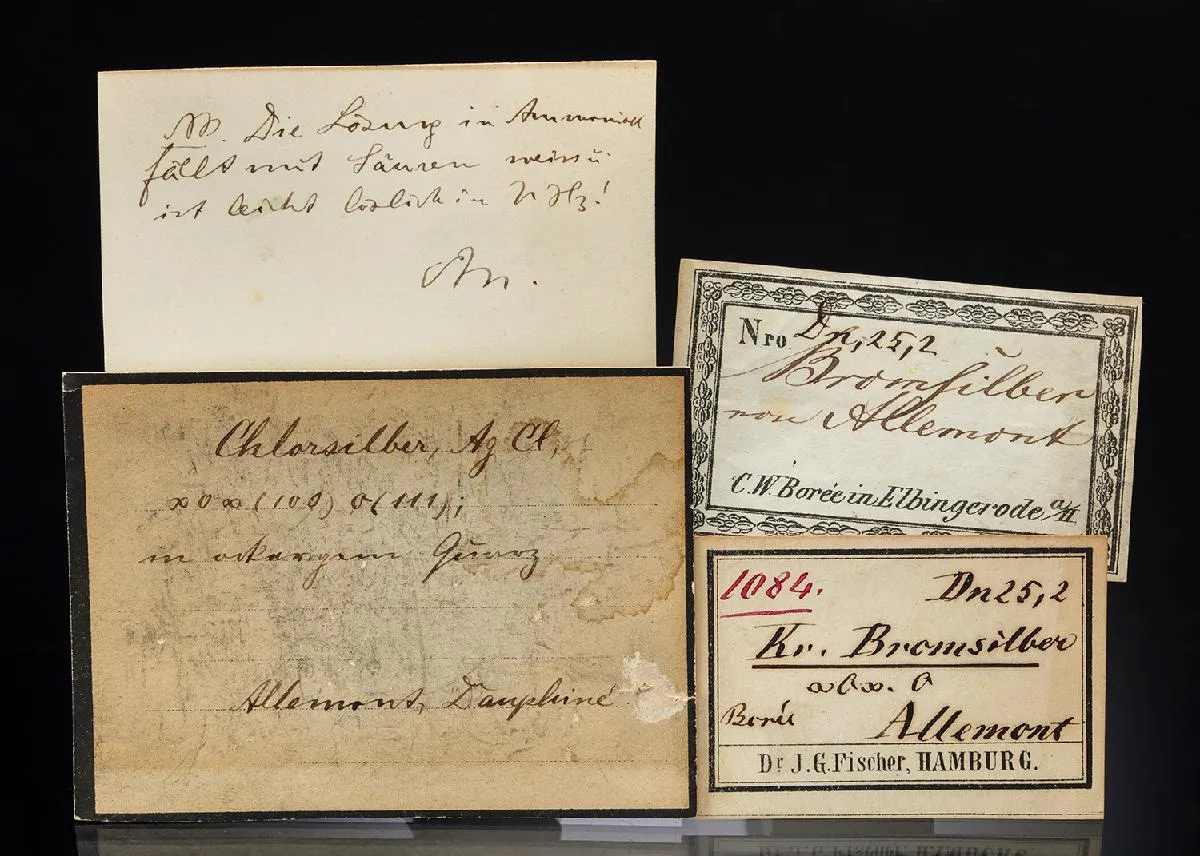 NB. Die Lösung in Ammoniak
fällt mit Säuren weiss u
ist leicht löslich in
An.
Chlorsilber, Ag Cl,
∞O∞ (100) O(111);
in ockergem Quarz
Allemont, Dauphiné
Nro Dn, 25, 2
Bromsilber
von Allemont
C.W Borée in Elbingerode a/H
1084. Dn 25, 2
Kr. Bromsilber
∞O∞. O
Borée Allemont
Dr J.G. Fischer, HAMBURG.